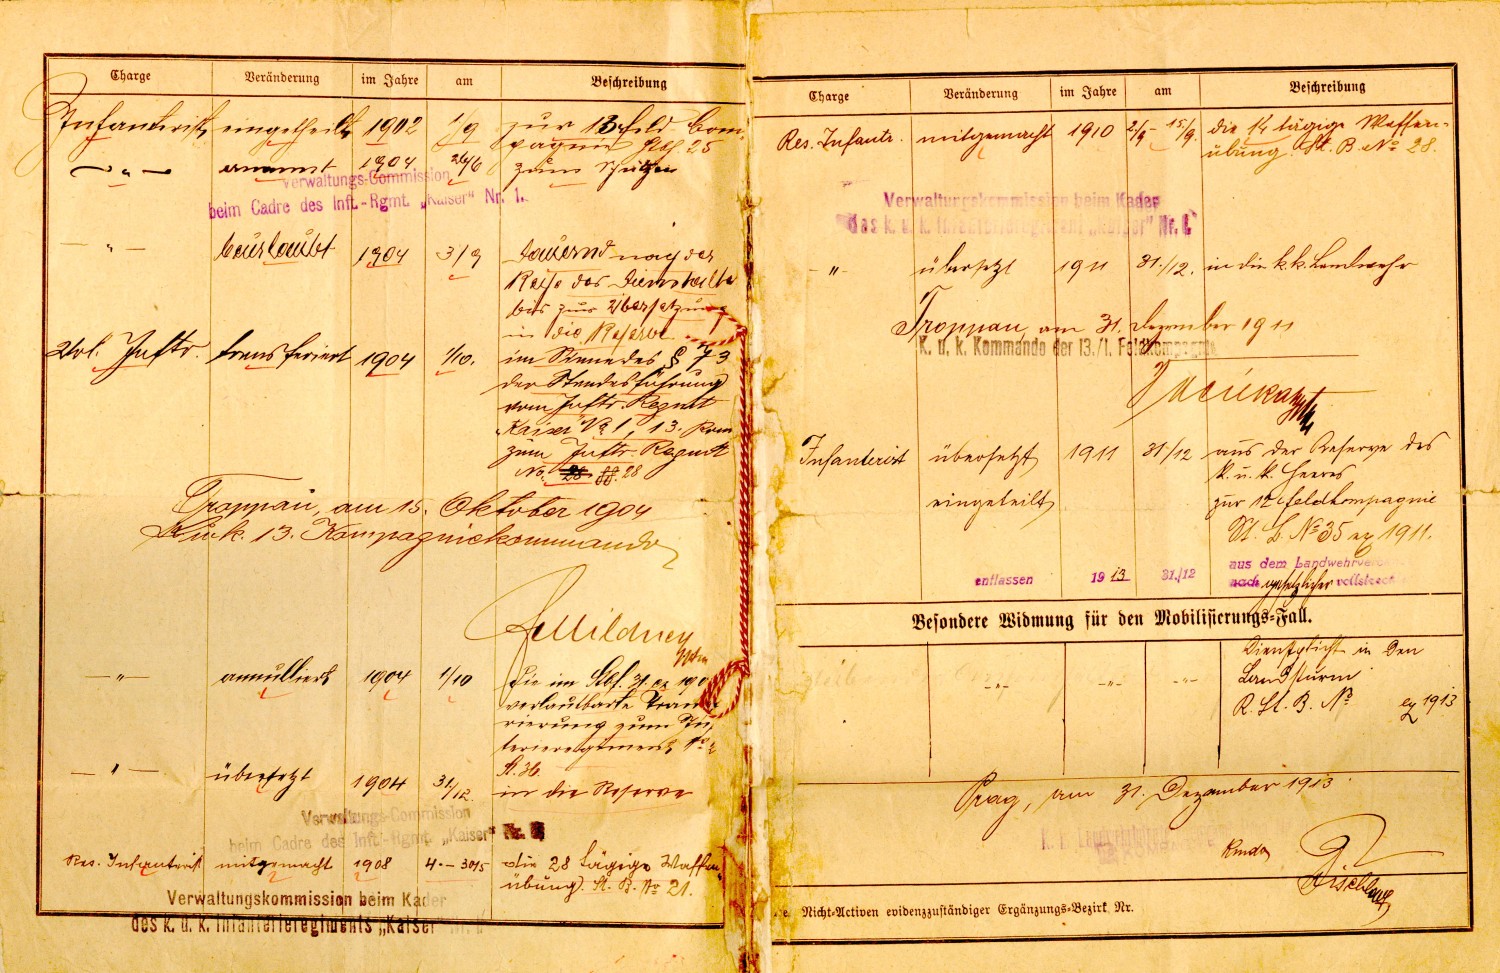 Charge Veränderung im Jahre am Beschreibung
Infanterist eingetheilt 1902 1/9 zur 13. Feld-Com-
pagnie Stbf. 25
— " — ernannt 1904 26/6 zum Schützen
Verwaltungs-Commission
beim Cadre des Inft.-Rgmt. „Kaiser" Nr. 1.
— " — beurlaubt 1904 3/9 dauernd nach der
Reihe des
bis zur Übersetzung
in die Reserve
Inftr. transferiert 1904 1/10. im Sinne des § 73
der Standesführung
vom Inftr. Regmt
Kaiser No 1, 13. Kom
zum Inftr. Regmt
No. 28
Troppau, am 15. Oktober 1904
K. u. k. 13. Kompagniekommando
— " — annulliert 1904 1/10 Die im Stbf. ex 190
verlautbarte Trans
rierung zum In
terieregiment No
St. 36.
— " — übersetzt 1904 31/12. in die Reserve
Verwaltungs-Commission
beim Cadre des Inft.-Rgmt. „Kaiser" Nr.
Res. Infanterist mitgemacht 1908 4.–30/5 die 28 tägige Waffen
übung. St. B. No 21.
Verwaltungskommission beim Kader
des k. u. k. Infanterieregiments „Kaiser" Nr.
Charge Veränderung im Jahre am Beschreibung
Res. Infantr. mitgemacht 1910 2/9– 15/9. die 14 tägige Waffen-
übung. St. B. No 28.
Verwaltungskommission beim Kader
des k. u. k. Infanterieregiment „Kaiser" Nr. 1.
— " — übersetzt 1911 31./12. in die k. k. Landwehr
Troppau, am 31. Dezember 1911
K. u. k. Kommando der 13./1. Feldkompagnie
Infanterist übersetzt 1911 31/12 aus der Reserve des
k. u. k. Heeres
eingeteilt zur 12. Feldkompagnie
St. B. No 35 ex 1911.
entlassen 1913 31./12 aus dem Landwehrver
nach gesetzlicher vollstreckt
Besondere Widmung für den Mobilisierungs-Fall.
-"- -"- -"- Dienstpflicht in den
Landsturm
R. St. B. No ex 1913
Prag, am 31. Dezember 1913
Nicht-Activen evidenzzuständiger Ergänzungs-Bezirk Nr.